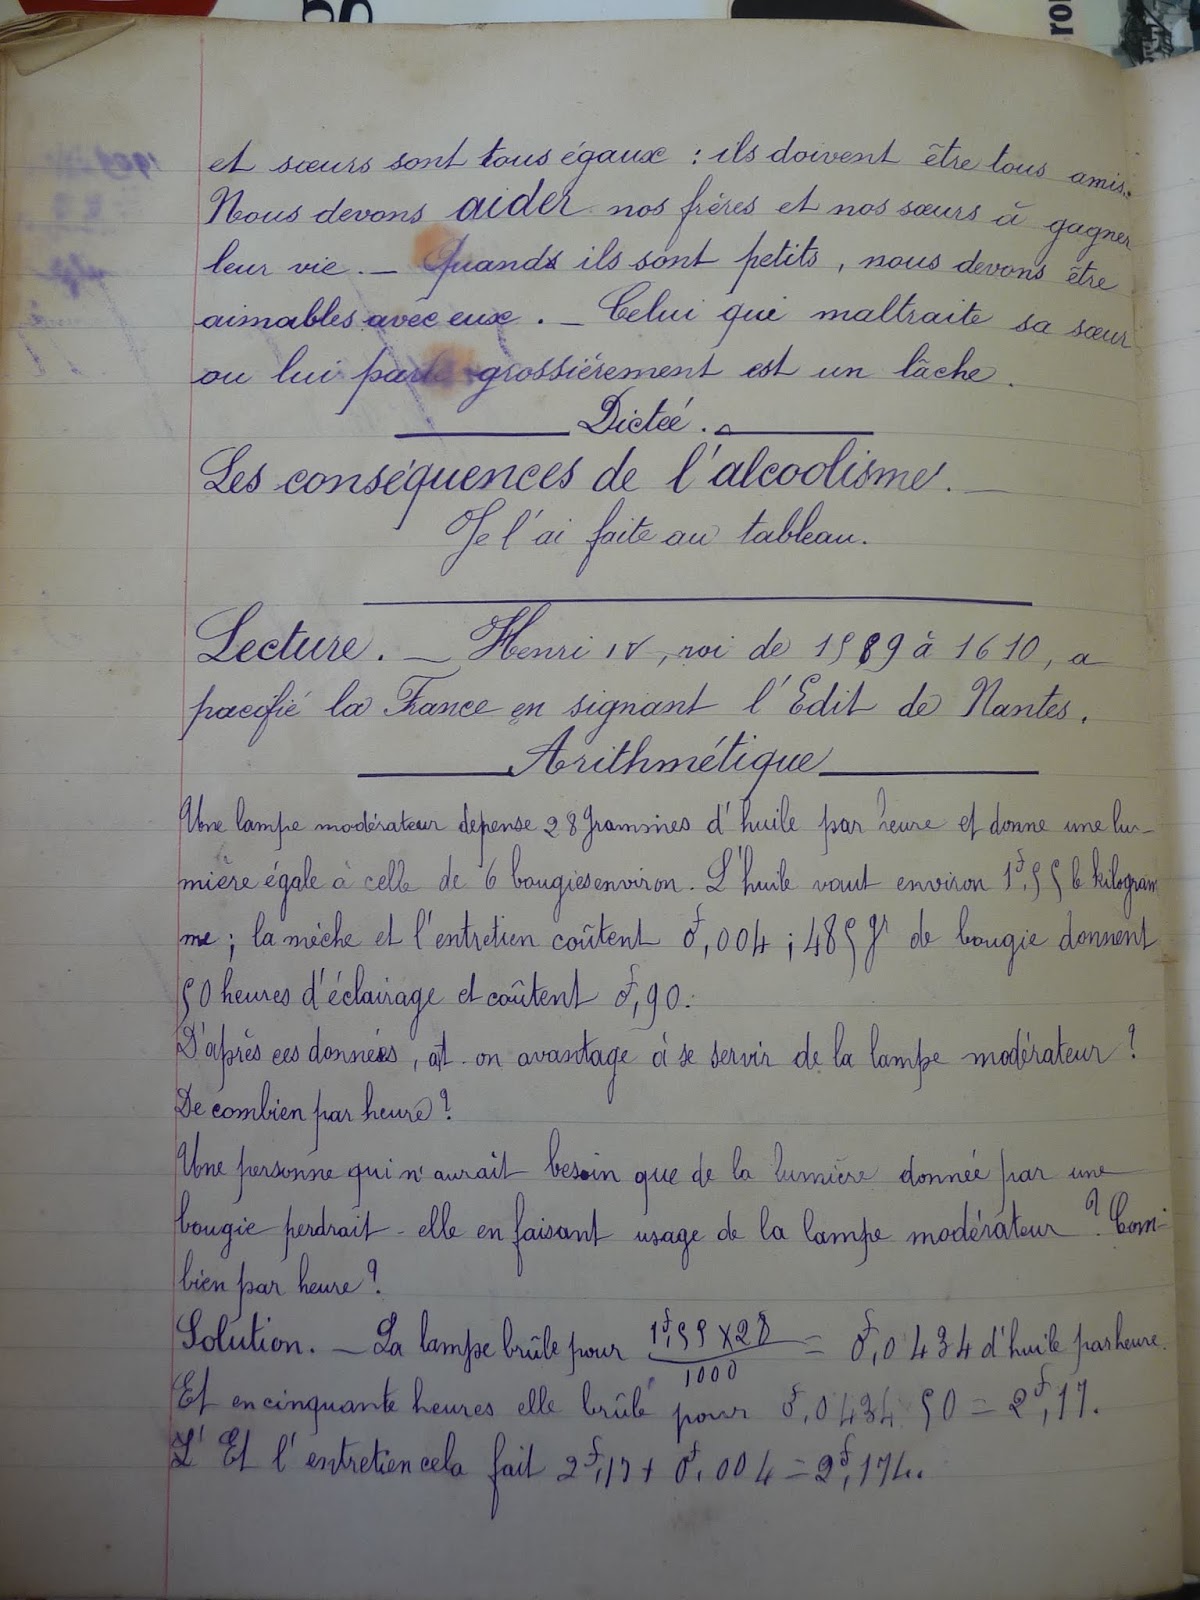 et sœurs sont tous égaux : ils doivent être tous amis.
Nous devons aider nos fréres et nos sœurs à gagner
leur vie. — Quands ils sont petits, nous devons être
aimables avec eux. — Celui qui maltraite sa sœur
ou lui parle grossiérement est un lâche.
Dicteé.
Les conséquences de l'alcoolisme. —
Je l'ai faite au tableau.
Lecture. — Henri IV, roi de 1589 à 1610, a
pacifié la France en signant l'Edit de Nantes.
Arithmétique
Une lampe modérateur depense 28 grammes d'huile par heure et donne une lu-
mière égale à celle de 6 bougies environ. L'huile vaut environ 1f,55 le kilogram
me ; la mèche et l'entretien coûtent 0f,004 ; 485gr de bougie donnent
50 heures d'éclairage et coûtent 0f,90.
D'après ces données, at-on avantage à se servir de la lampe modérateur ?
De combien par heure ?
Une personne qui n'aurait besoin que de la lumière donnée par une
bougie perdrait-elle en faisant usage de la lampe modérateur ? Com-
bien par heure ?
Solution. — La lampe brûle pour 1f,55 x 28 / 1000 = 0f,0434 d'huile par heure.
Et en cinquante heures elle brûle pour 0f,0434 50 = 2f,17.
L' Et l'entretien cela fait 2f,17 + 0f,004 = 2f,174.